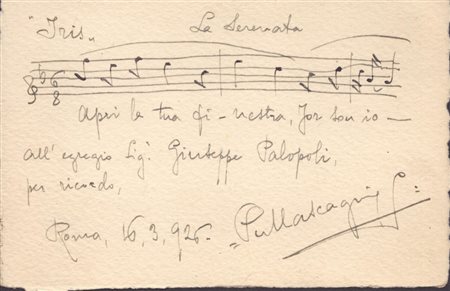 "Iris„ La Serenata
6 8
Apri la tua fi-nestra, Jor son io —
all'egregio Sig. Giuseppe Palopoli,
per ricordo,
Roma, 16, 3, 926. "PMascagni"